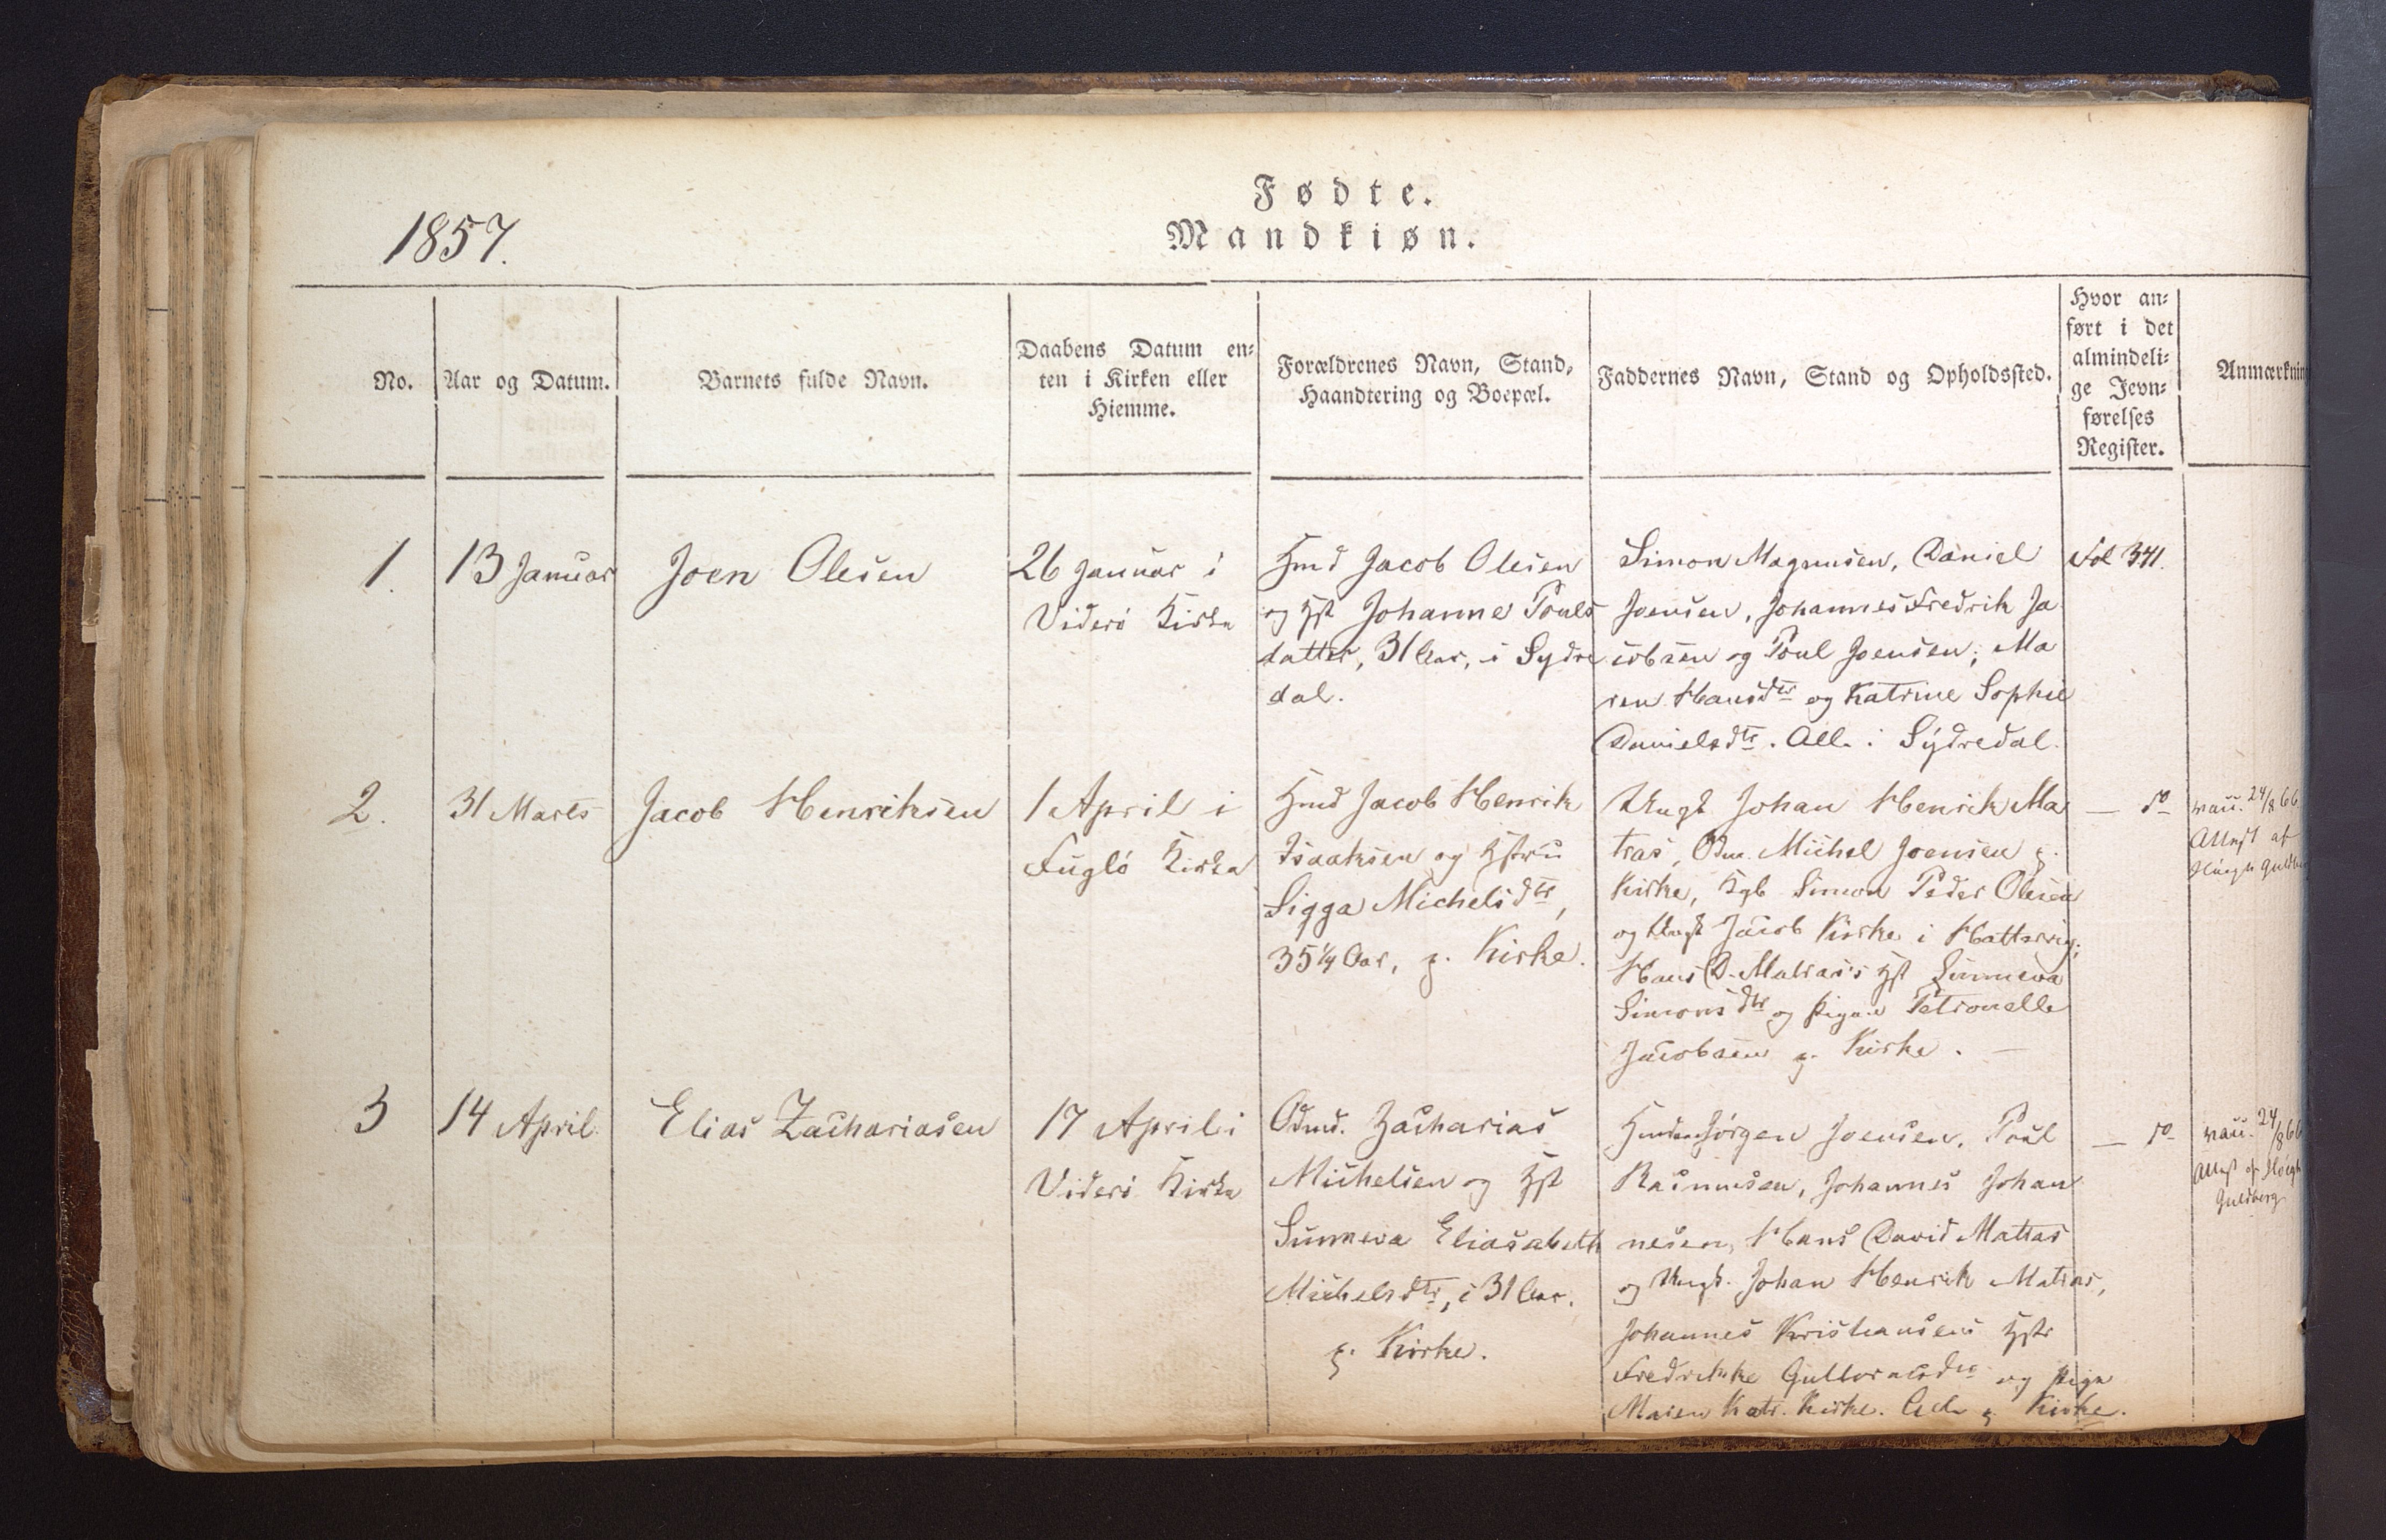 Fødte.
Mandkiøn.
1857.
No.
Aar og Datum.
Barnets fulde Navn.
Daabens Datum en-
ten i Kirken eller
Hiemme.
Forældrenes Navn, Stand,
Haandtering og Boepæl.
Faddernes Navn, Stand og Opholdssted.
Hvor an-
ført i det
almindeli-
ge Jevn-
førelses
Register.
Anmærkning
1.
13 Januar
Joen Olesen
26 Januar i
Viderö Kirke
Hmd Jacob Olesen
og Hst Johanne Pouls
datter, 31 Aar, i Sydre
dal.
Simon Magnusen, Daniel
Joensen, Johannes Fredrik Ja
cobsen og Poul Joensen; Ma
ren Hansdtr og Katrine Sophie
Danielsdtr. Alle i Sydredal.
Fol 341.
2.
31 Marts
Jacob Henriksen
1 April i
Fuglö Kirke
Hmd Jacob Henrik
Isaaksen og Hstru
Sigga Michelsdtr,
35 1/4 Aar, p. Kirke.
Ungk Johan Henrik Ma
tras, Odm. Michel Joensen p.
Kirke, Kgb Simon Peder Olesen
og Ungk Jacob Kirke i Hattervig;
Hans D. Matras's Hst Sunneva
Simonsdtr og Pigen Petronelle
Jacobsen p. Kirke. —
— do
vacc. 24/8 66
Attest af
Höegh Guldberg
3
14 April
Elias Zachariasen
17 April i
Viderö Kirke
Odmd. Zacharias
Michelsen og Hst
Sunneva Eliasabeth
Michelsdtr, i 31 Aar.
p. Kirke.
Hmdene Jörgen Joensen, Poul
Rasmusen, Johannes Johan
nesen, Hans David Matras
og Ungk. Johan Henrik Matras,
Johannes Kristiansens Hstr
Fredrikke Guttormsdtr og Pige
Maren Katr. Kirke. Alle p. Kirke.
— do
vacc. 24/8 66
Attest af Höegh
Guldberg